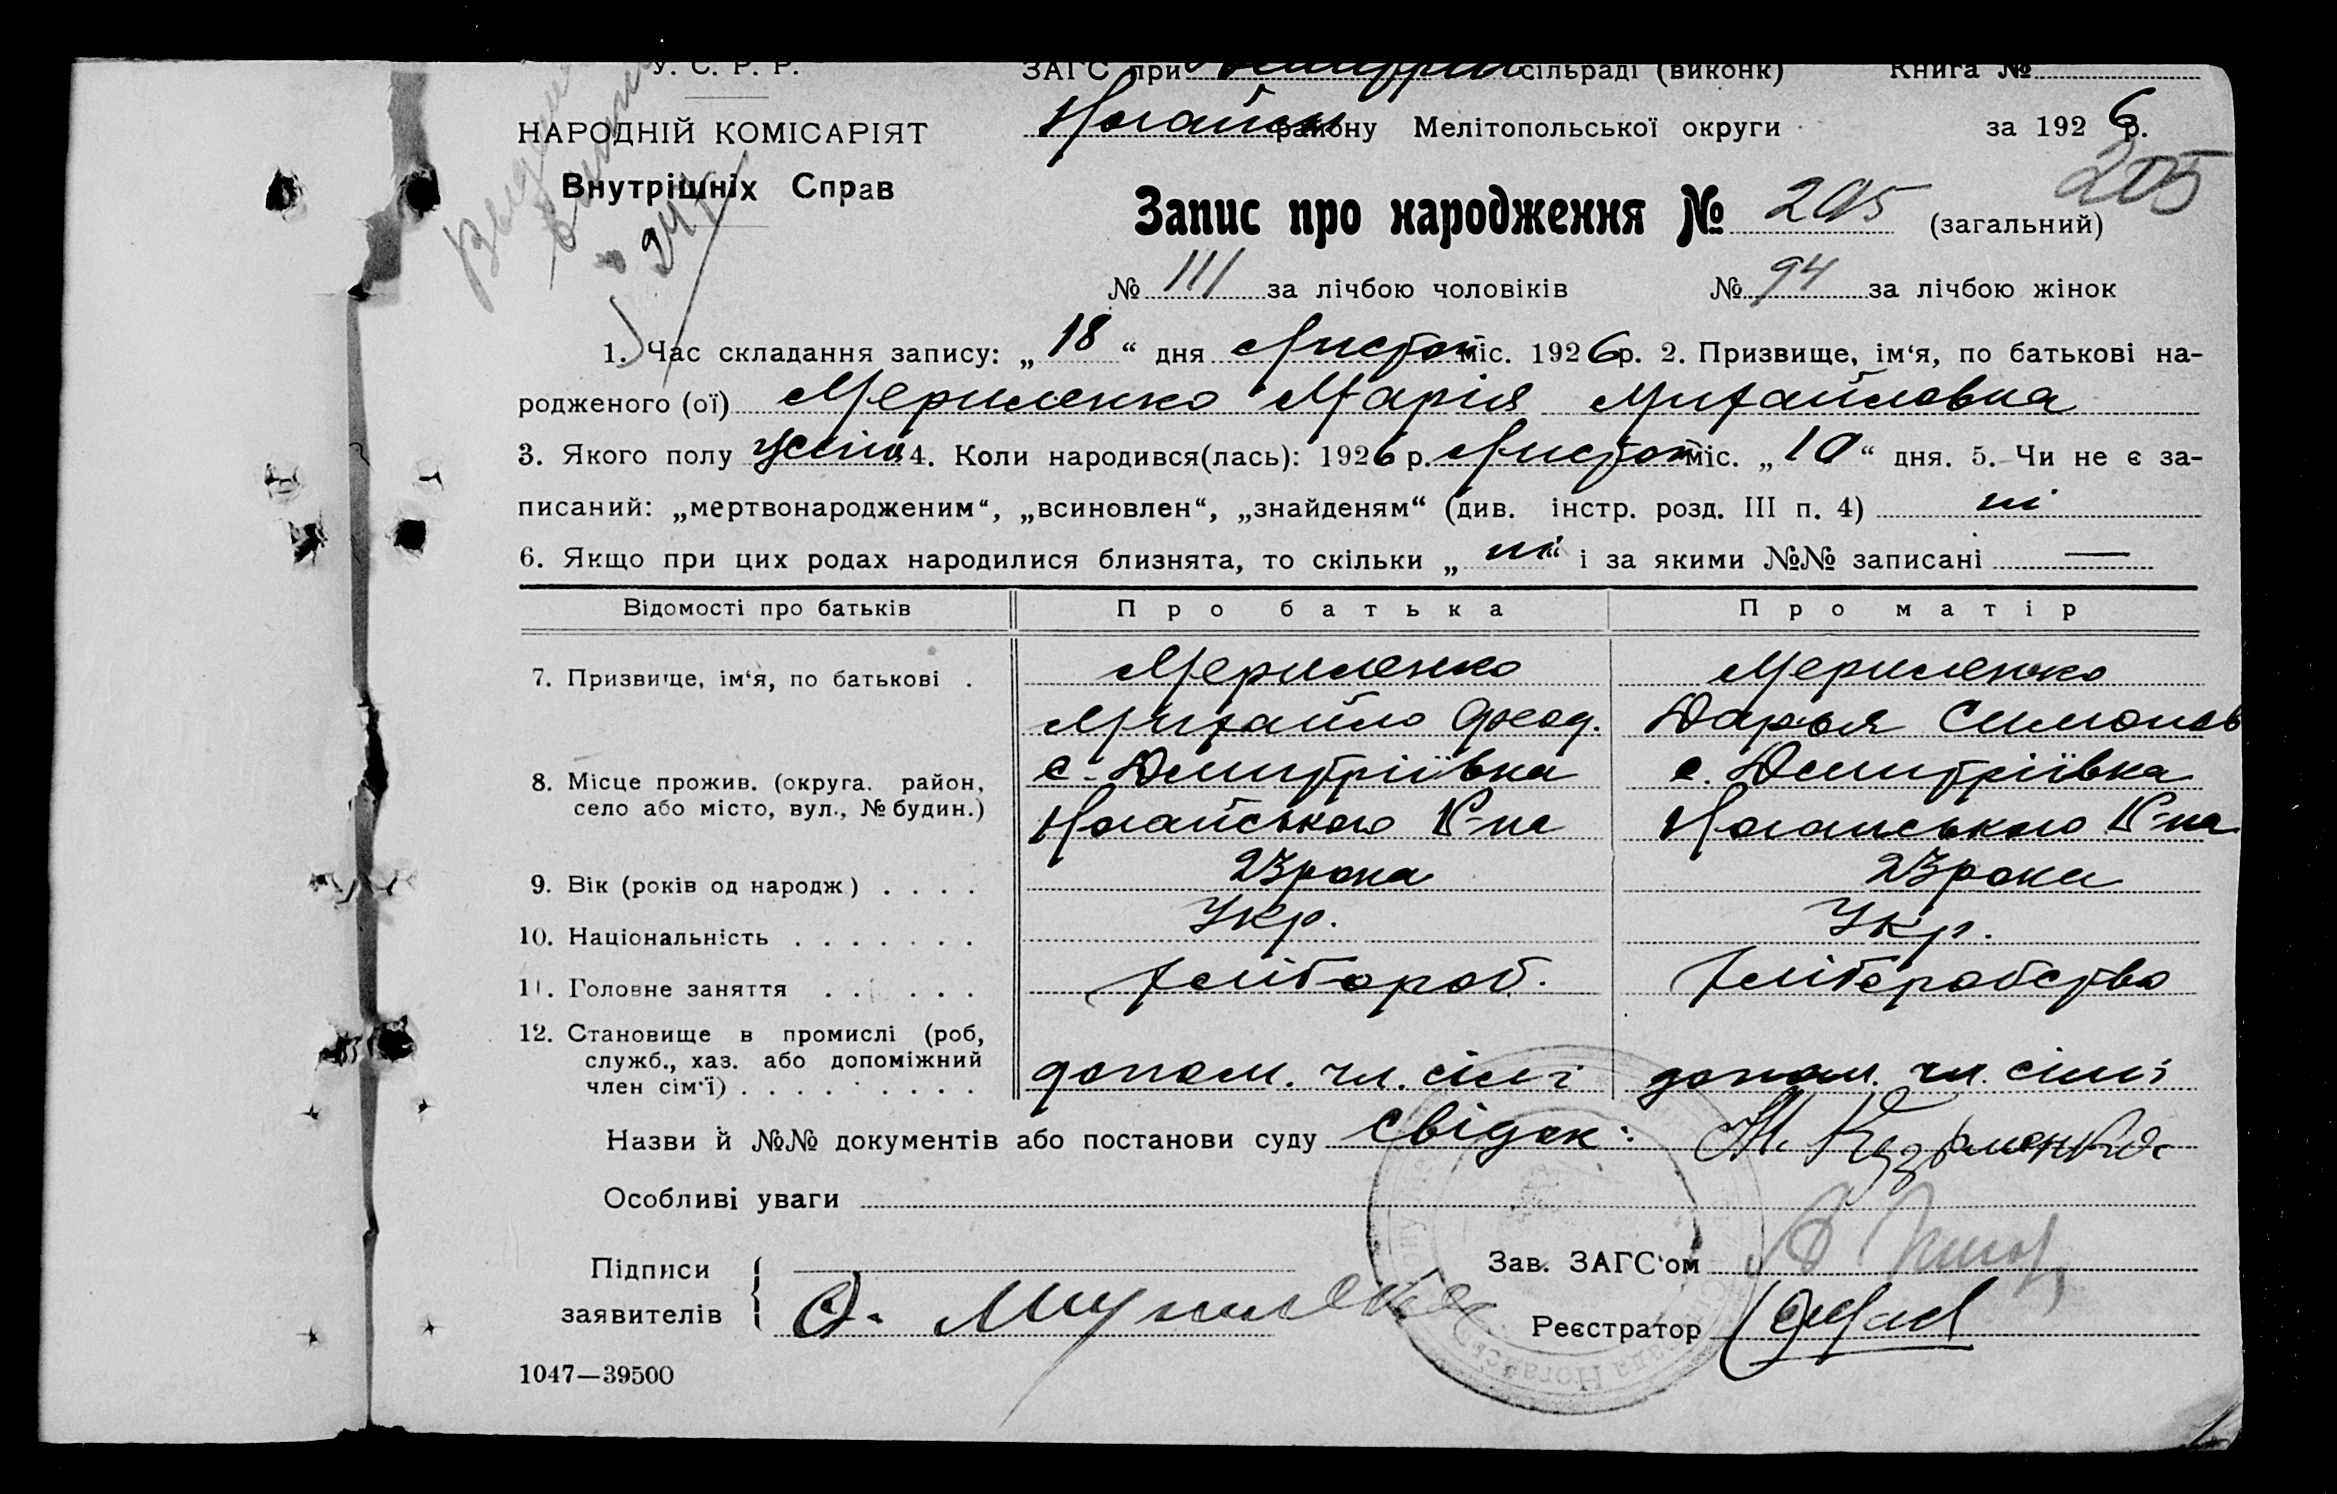 У. С. Р. Р.
ЗАГС при сільраді (виконк) Книга №
НАРОДНІЙ КОМІСАРІЯТ
Ногайськ району Мелітопольської округи за 1926 р.
Внутрішніх Справ
205
Запис про народження № 205 (загальний)
№ 111 за лічбою чоловіків № 94 за лічбою жінок
1. Час складання запису: „18“ дня Листоп міс. 1926 р. 2. Призвище, ім‘я, по батькові на-
родженого (ої) Мериленко Марія Михайловна
3. Якого полу жіно 4. Коли народився(лась): 1926 р. Листоп міс. „10“ дня. 5. Чи не є за-
писаний: „мертвонародженим“, „всиновлен“, „знайденям“ (див. інстр. розд. III п. 4) ні
6. Якщо при цих родах народилися близнята, то скільки „ні“ і за якими №№ записані —
Відомості про батьків Про батька Про матір
7. Призвище, ім‘я, по батькові . Мериленко Мериленко
Михайло Феод. Дарья Симонов
8. Місце прожив. (округа. район, с. Дмитріївка с. Дмитріївка
село або місто, вул., № будин.) Ногайського Р-на Ногайського Р-на
9. Вік (років од народж) . . . . 23 рока 23 роки
10. Національність . . . . . . . Укр. Укр.
11. Головне заняття . . . . . . Хлібороб. Хліборобство
12. Становище в промислі (роб,
служб., хаз. або допоміжний
член сім‘ї) . . . . . . . . допом. чл. сімї допом. чл. сімї
Назви й №№ документів або постанови суду Свідок:
Особливі уваги
Підписи
заявителів
Зав. ЗАГС‘ом
Реєстратор
1047—39500